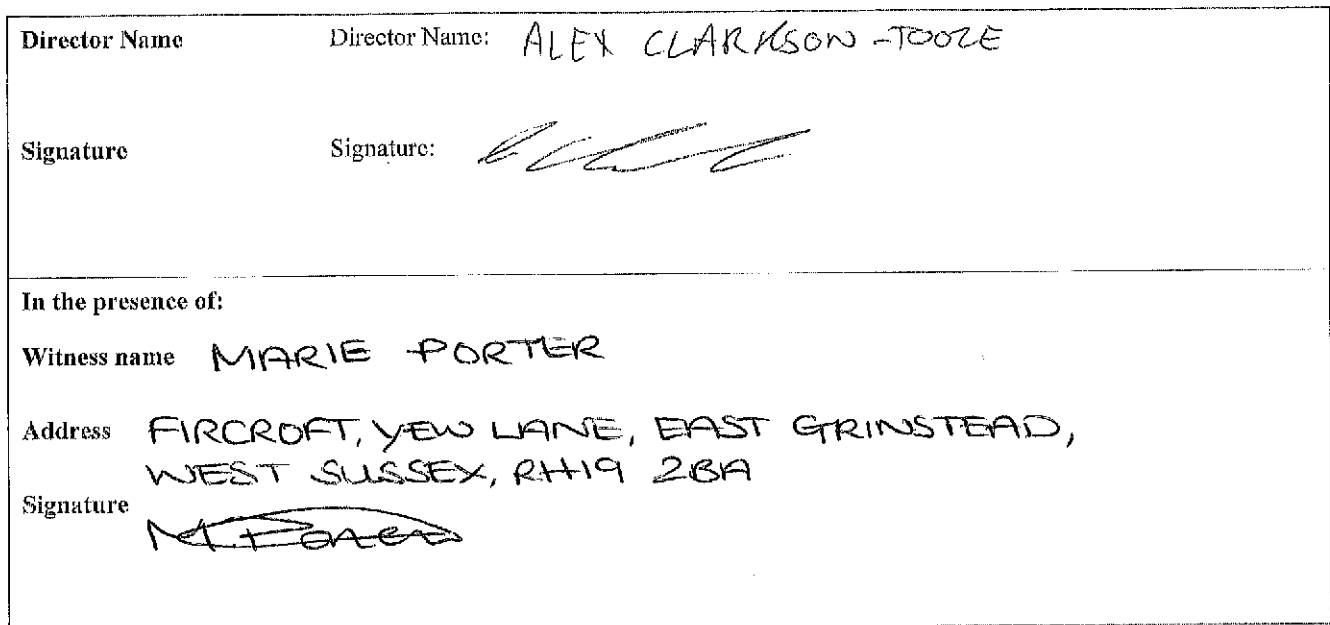 Director Name Director Name: ALEX CLARKSON-TOOZE
Signature Signature:
In the presence of:
Witness name MARIE PORTER
Address FIRCROFT, YEW LANE, EAST GRINSTEAD,
WEST SUSSEX, RH19 2BA
Signature
M. Porter